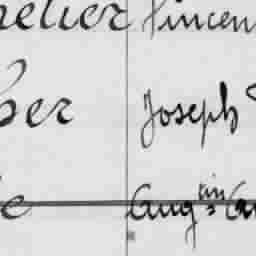 elier Vincen
ber Joseph
e Aug:tin